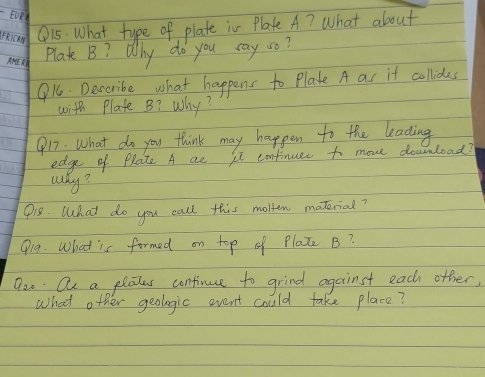 EUR
AFRICAN
AMER
Q15. What type of plate is Plate A? What about
Plate B? Why do you say so?
Q16. Describe what happens to Plate A as it collides
with Plate B? Why?
Q17. What do you think may happen to the leading
edge of Plate A as it continues to move download?
Why?
Q18. What do you call this molten material?
Q19. What is formed on top of Plate B?
Q20. As a plates continue to grind against each other,
What other geologic event could take place?